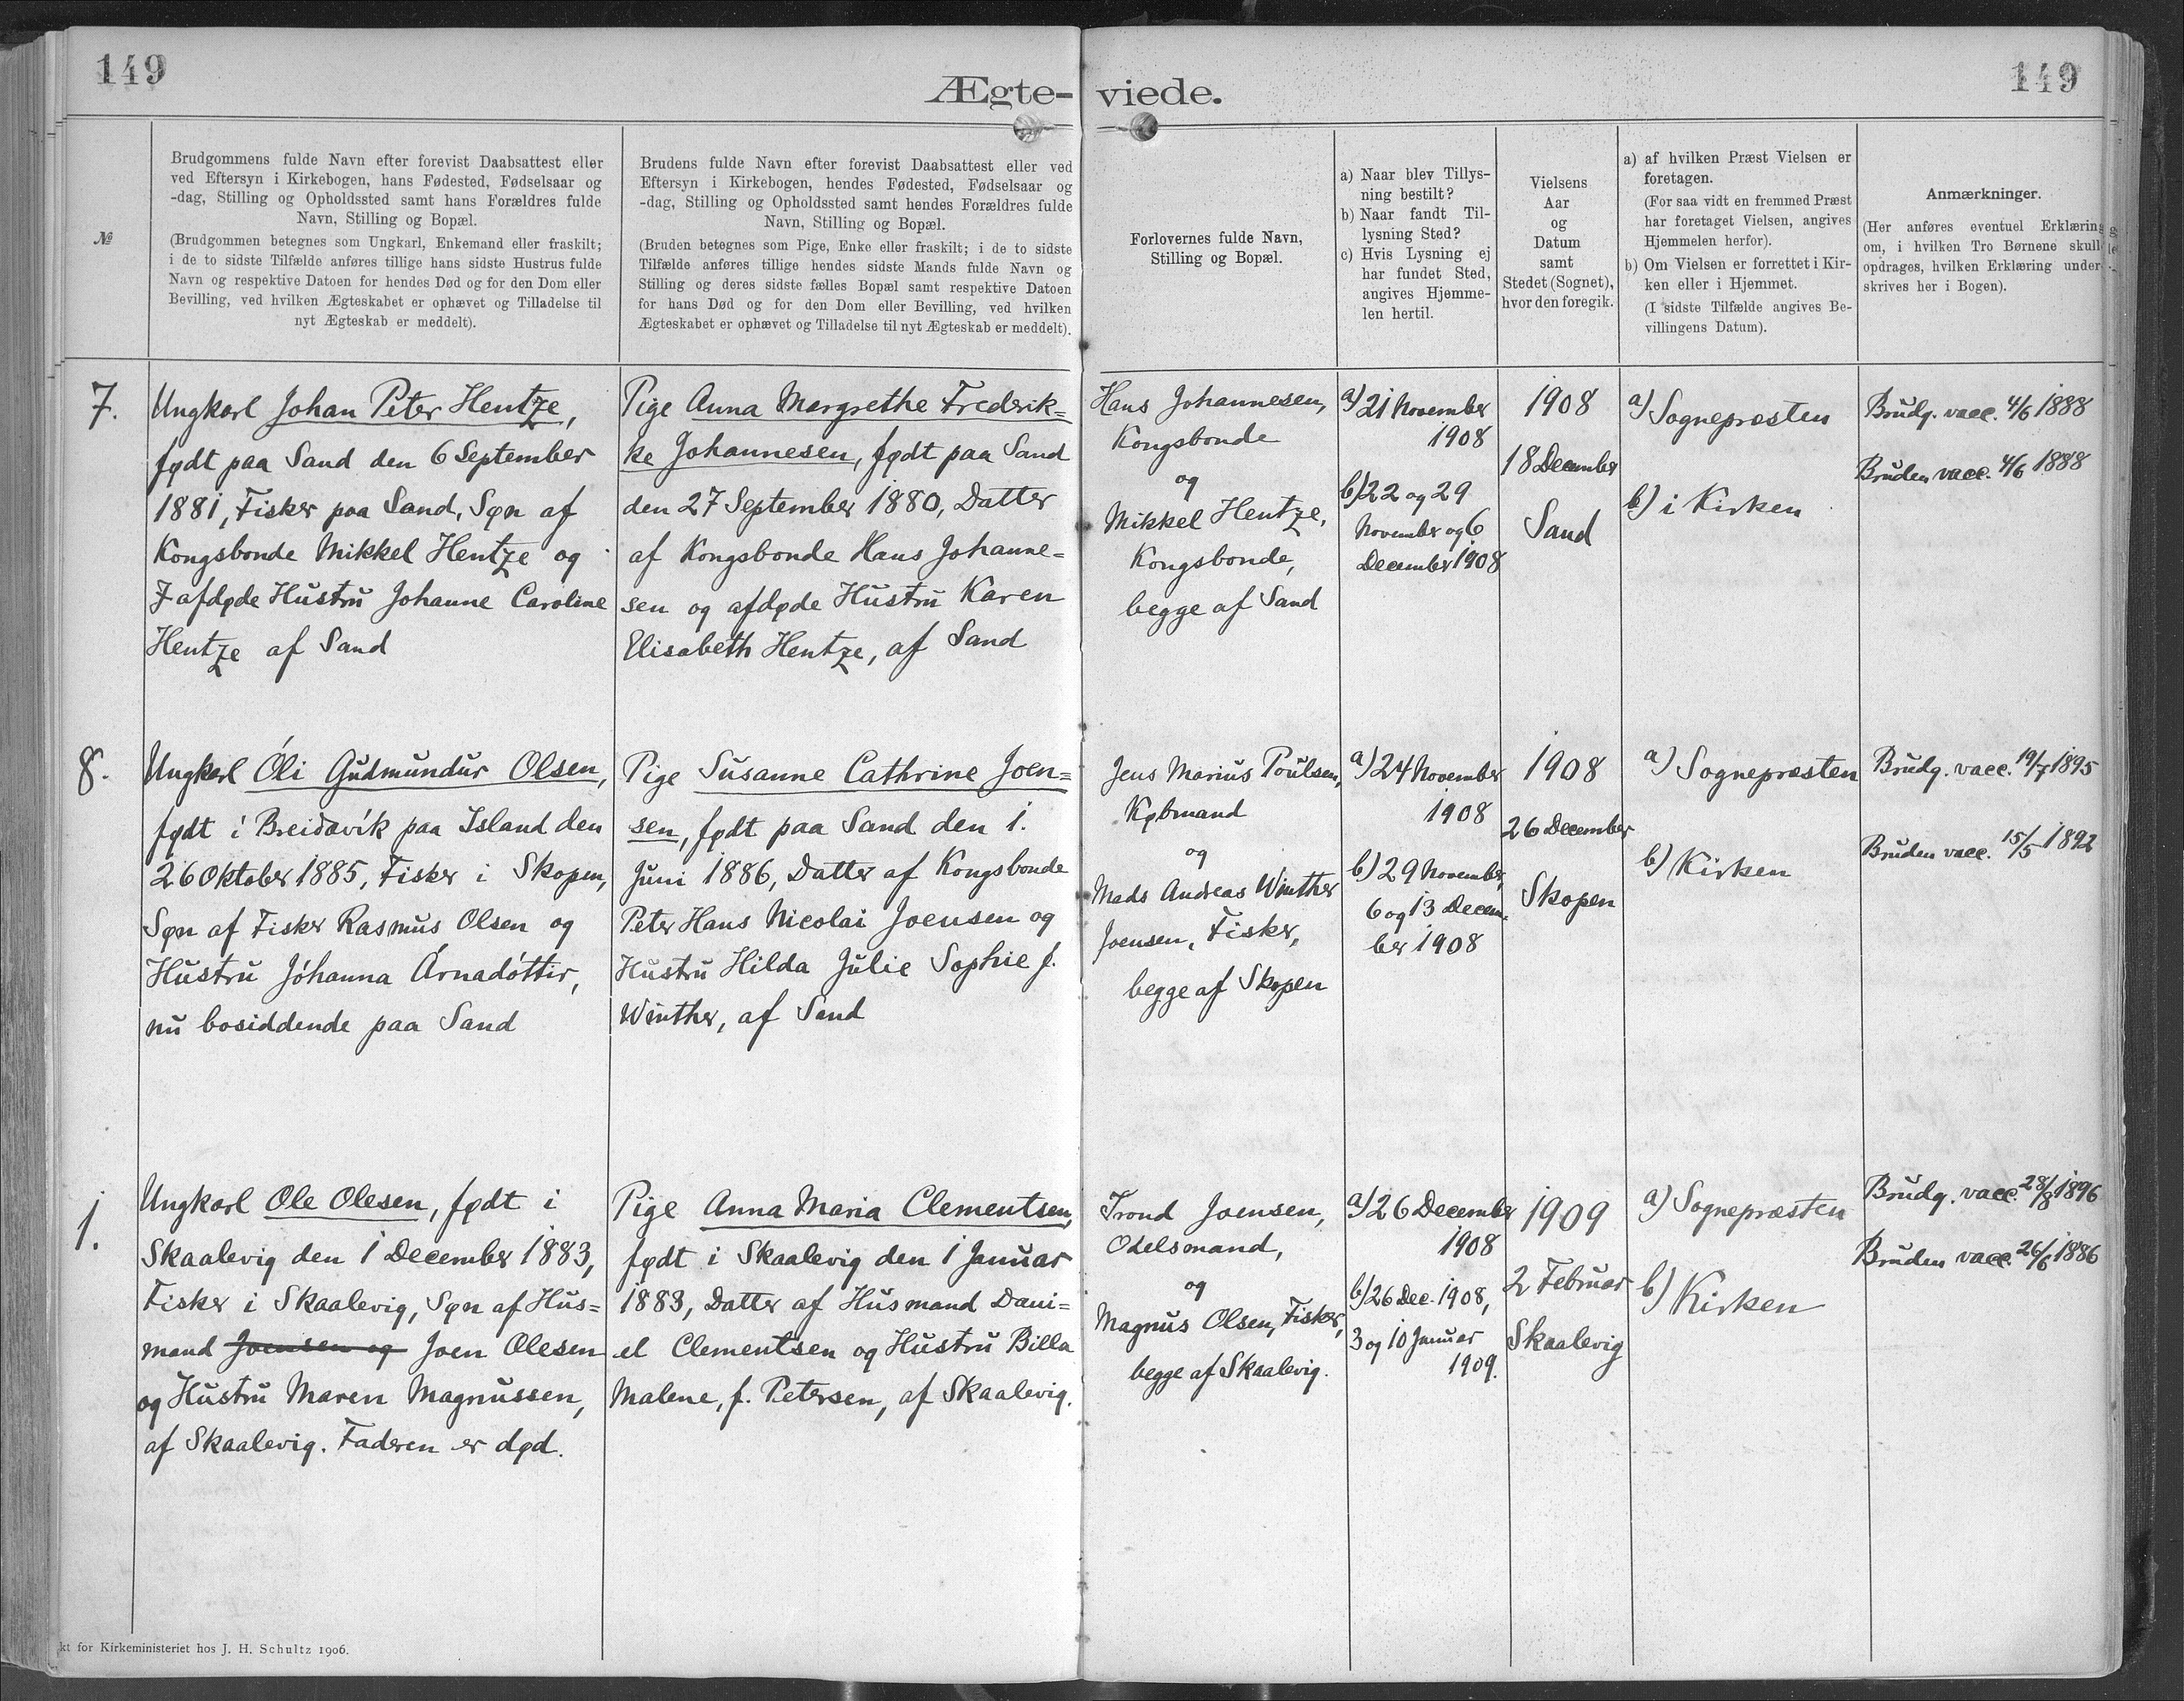 149
149
Ægte-viede.
№
Brudgommens fulde Navn efter forevist Daabsattest eller
ved Eftersyn i Kirkebogen, hans Fødested, Fødselsaar og
-dag, Stilling og Opholdssted samt hans Forældres fulde
Navn, Stilling og Bopæl.
(Brudgommen betegnes som Ungkarl, Enkemand eller fraskilt;
i de to sidste Tilfælde anføres tillige hans sidste Hustrus fulde
Navn og respektive Datoen for hendes Død og for den Dom eller
Bevilling, ved hvilken Ægteskabet er ophævet og Tilladelse til
nyt Ægteskab er meddelt).
Brudens fulde Navn efter forevist Daabsattest eller ved
Eftersyn i Kirkebogen, hendes Fødested, Fødselsaar og
-dag, Stilling og Opholdssted samt hendes Forældres fulde
Navn, Stilling og Bopæl.
(Bruden betegnes som Pige, Enke eller fraskilt; i de to sidste
Tilfælde anføres tillige hendes sidste Mands fulde Navn og
Stilling og deres sidste fælles Bopæl samt respektive Datoen
for hans Død og for den Dom eller Bevilling, ved hvilken
Ægteskabet er ophævet og Tilladelse til nyt Ægteskab er meddelt).
Forlovernes fulde Navn,
Stilling og Bopæl.
a) Naar blev Tillys-
ning bestilt?
b) Naar fandt Til-
lysning Sted?
c) Hvis Lysning ej
har fundet Sted,
angives Hjemme-
len hertil.
Vielsens
Aar
og
Datum
samt
Stedet (Sognet),
hvor den foregik.
a) af hvilken Præst Vielsen er
foretagen.
(For saa vidt en fremmed Præst
har foretaget Vielsen, angives
Hjemmelen herfor).
b) Om Vielsen er forrettet i Kir-
ken eller i Hjemmet.
(I sidste Tilfælde angives Be-
villingens Datum).
Anmærkninger.
(Her anføres eventuel Erklæring
om, i hvilken Tro Børnene skull
opdrages, hvilken Erklæring under-
skrives her i Bogen).
7.
Ungkarl Johan Peter Hentze,
født paa Sand den 6 September
1881, Fisker paa Sand, Søn af
Kongsbonde Mikkel Hentze og
afdøde Hustru Johanne Caroline
Hentze af Sand
Pige Anna Margrethe Frederik=
ke Johannesen, født paa Sand
den 27 September 1880, Datter
af Kongsbonde Hans Johanne=
sen og afdøde Hustru Karen
Elisabeth Hentze, af Sand
Hans Johannesen,
Kongsbonde
og
Mikkel Hentze,
Kongsbonde,
begge af Sand
a) 21 November
1908
b) 22 og 29
November og 6
December 1908
1908
18 December
Sand
a) Sognepræsten
b) i Kirken
Brudg. vacc. 4/6 1888
Bruden vacc. 4/6 1888
8.
Ungkarl Óli Gudmundur Olsen,
født i Breidavík paa Island den
26 Oktober 1885, Fisker i Skopen,
Søn af Fisker Rasmus Olsen og
Hustru Jóhanna Árnadóttir,
nu bosiddende paa Sand
Pige Susanne Cathrine Joen=
sen, født paa Sand den 1.
Juni 1886, Datter af Kongsbonde
Peter Hans Nicolai Joensen og
Hustru Hilda Julie Sophie f.
Winther, af Sand
Jens Marius Poulsen,
Købmand
og
Mads Andreas Winther
Joensen, Fisker,
begge af Skopen
a) 24 November
1908
b) 29 November,
6 og 13 Decem-
ber 1908
1908
26 December
Skopen
a) Sognepræsten
b) Kirken
Brudg. vacc. 19/7 1895
Bruden vacc. 15/5 1892
1.
Ungkarl Ole Olesen, født i
Skaalevig den 1 December 1883,
Fisker i Skaalevig, Søn af Hus=
mand Joensen og Joen Olesen
og Hustru Maren Magnussen,
af Skaalevig. Faderen er død.
Pige Anna Maria Clementsen,
født i Skaalevig den 1 Januar
1883, Datter af Husmand Dani=
el Clementsen og Hustru Billa
Malene, f. Petersen, af Skaalevig.
Trond Joensen,
Odelsmand,
og
Magnus Olsen, Fisker,
begge af Skaalevig.
a) 26 December
1908
b) 26 Dec. 1908,
3 og 10 Januar
1909.
1909
2 Februar
Skaalevig
a) Sognepræsten
b) Kirken
Brudg. vacc. 28/8 1896
Bruden vacc. 26/6 1886
kt for Kirkeministeriet hos J. H. Schultz 1906.